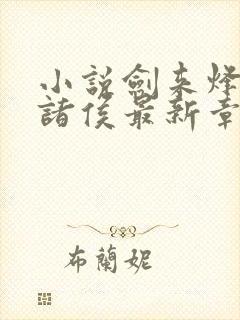 小説劍来烽
諸侯最新章
布蘭妮